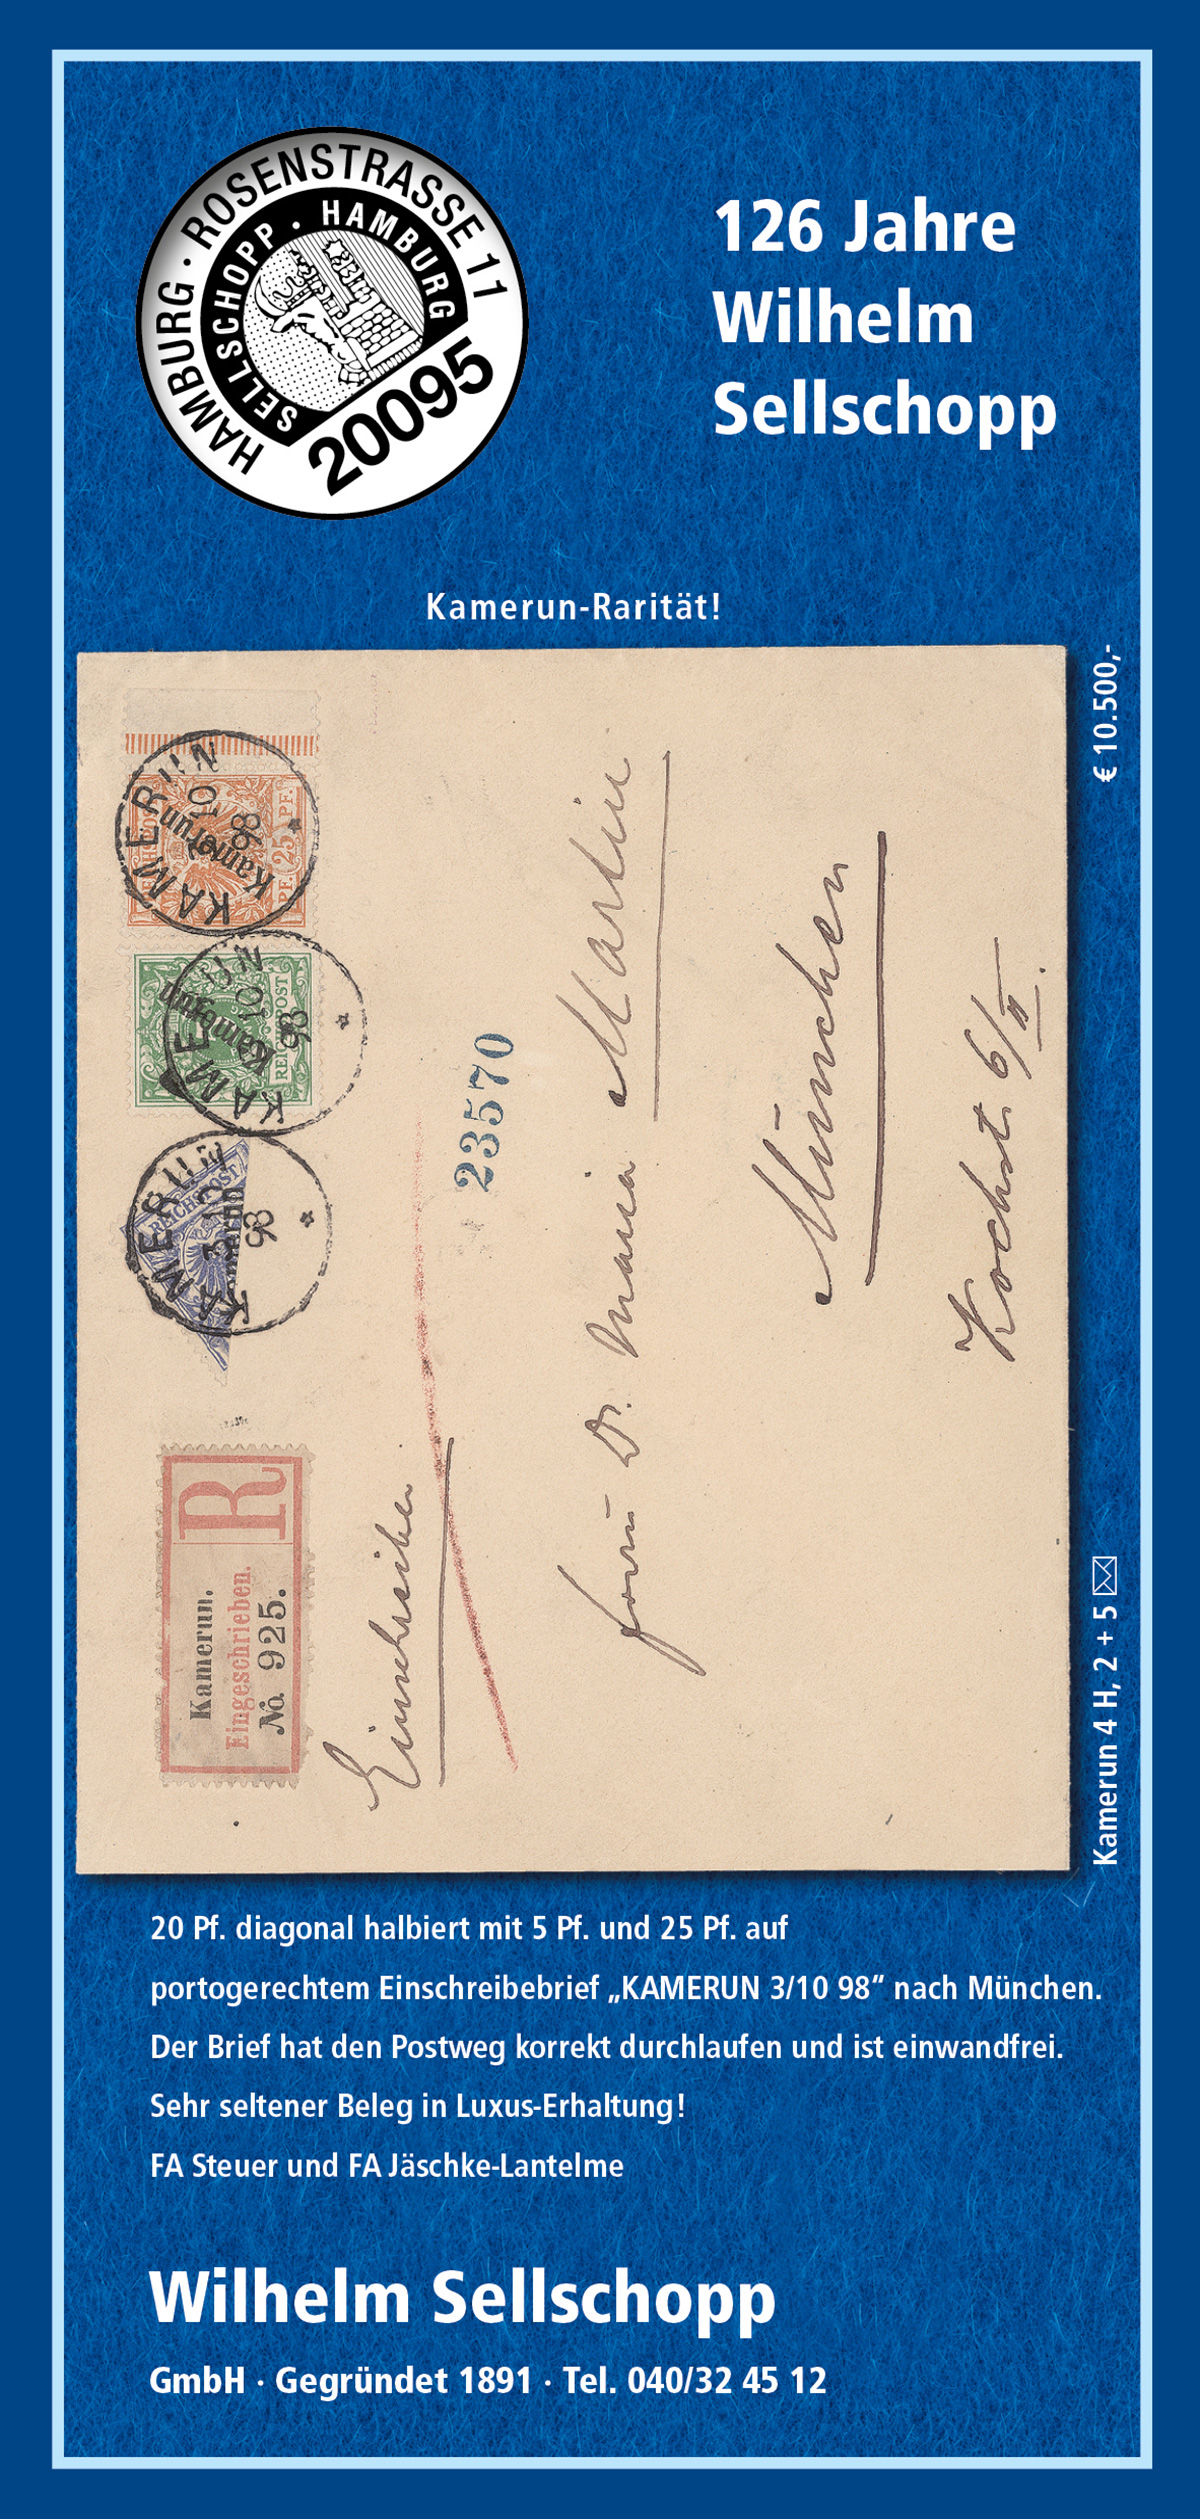 HAMBURG · ROSENSTRASSE 11
SELLSCHOPP · HAMBURG
20095
126 Jahre
Wilhelm
Sellschopp
Kamerun-Rarität!
€ 10.500,-
KAMERUN
10
98
Kamerun
25 PF.
KAMERUN
10
98
Kamerun
REICHSPOST
KAMERUN
3 12
98
Kamerun
REICHSPOST
23570
R
Kamerun.
Eingeschrieben.
No. 925.
Einschreiben
Dr. Maria Martin
München
Kochst. 6/II.
Kamerun 4 H, 2 + 5 ✉
20 Pf. diagonal halbiert mit 5 Pf. und 25 Pf. auf
portogerechtem Einschreibebrief „KAMERUN 3/10 98“ nach München.
Der Brief hat den Postweg korrekt durchlaufen und ist einwandfrei.
Sehr seltener Beleg in Luxus-Erhaltung!
FA Steuer und FA Jäschke-Lantelme
Wilhelm Sellschopp
GmbH · Gegründet 1891 · Tel. 040/32 45 12